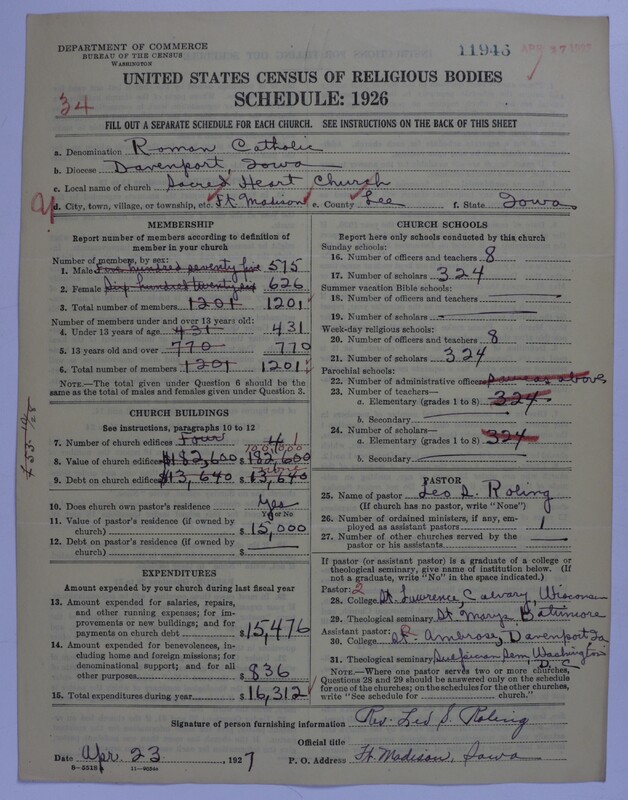 DEPARTMENT OF COMMERCE
BUREAU OF THE CENSUS
WASHINGTON
11946 APR 27 1927
UNITED STATES CENSUS OF RELIGIOUS BODIES
SCHEDULE: 1926
34
FILL OUT A SEPARATE SCHEDULE FOR EACH CHURCH. SEE INSTRUCTIONS ON THE BACK OF THIS SHEET
a. Denomination Roman Catholic
b. Diocese Davenport, Iowa
c. Local name of church Sacred Heart Church
d. City, town, village, or township, etc. Ft Madison e. County Lee f. State Iowa
MEMBERSHIP
Report number of members according to definition of
member in your church
Number of members, by sex:
1. Male Five hundred seventy five 575
2. Female Six hundred twenty six 626
3. Total number of members 1201 1201
Number of members under and over 13 years old:
4. Under 13 years of age 431 431
5. 13 years old and over 770 770
6. Total number of members 1201 1201
NOTE.—The total given under Question 6 should be the
same as the total of males and females given under Question 3.
CHURCH BUILDINGS
See instructions, paragraphs 10 to 12
7. Number of church edifices Four 4 1
8. Value of church edifices $182,600 $182,600
9. Debt on church edifices $13,640 $13,640
10. Does church own pastor's residence Yes
Yes or No
11. Value of pastor's residence (if owned by
church) $15,000
12. Debt on pastor's residence (if owned by
church) $
EXPENDITURES
Amount expended by your church during last fiscal year
13. Amount expended for salaries, repairs,
and other running expenses; for im-
provements or new buildings; and for
payments on church debt $15,476
14. Amount expended for benevolences, in-
cluding home and foreign missions; for
denominational support; and for all
other purposes $836
15. Total expenditures during year $16,312
CHURCH SCHOOLS
Report here only schools conducted by this church
Sunday schools:
16. Number of officers and teachers 8
17. Number of scholars 324
Summer vacation Bible schools:
18. Number of officers and teachers
19. Number of scholars
Week-day religious schools:
20. Number of officers and teachers 8
21. Number of scholars 324
Parochial schools:
22. Number of administrative officers same as above
23. Number of teachers—
a. Elementary (grades 1 to 8) 324
b. Secondary
24. Number of scholars—
a. Elementary (grades 1 to 8) 324
b. Secondary
PASTOR
25. Name of pastor Leo S. Roling
(If church has no pastor, write "None")
26. Number of ordained ministers, if any, em-
ployed as assistant pastors 1
27. Number of other churches served by the
pastor or his assistants
If pastor (or assistant pastor) is a graduate of a college or
theological seminary, give name of institution below. (If
not a graduate, write "No" in the space indicated.)
Pastor: 2
28. College St. Lawrence Calvary, Wisconsin
29. Theological seminary St. Marys Baltimore
Assistant pastor: 2
30. College St. Ambrose, Davenport Ia
31. Theological seminary Sulpician Sem. Washington
D. C
NOTE.—Where one pastor serves two or more churches,
Questions 28 and 29 should be answered only on the schedule
for one of the churches; on the schedules for the other churches,
write "See schedule for church."
Signature of person furnishing information Rev. Leo S. Roling
Official title
Date Apr. 23, 1927 P. O. Address Ft. Madison, Iowa
8-551SA 11-9034